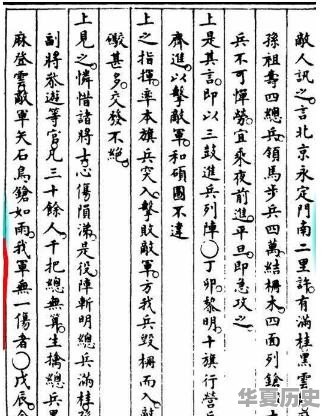 敵人訊之言北京永定門南二里許有滿桂黑雲
孫祖壽四總兵領馬步兵四萬結柵木四面列鎗
兵不可憚勞宜乘夜前進。平旦即急攻之
上是其言。即以三鼓進兵列陣○丁卯黎明十旗行營兵
齊進。以擊敵軍。和碩圖不違
上之指揮率本旗兵突入擊敗敵軍。方我兵毀柵而入
礮甚多。交發不絕。
上見之憐惜諸將士心傷隕涕。是役陣斬明總兵滿桂
副將參遊等官凡三十餘人。千把總無算。生擒總兵黑
麻登雲。敵軍矢石鳥鎗如雨。我軍無一傷者○戊辰
华夏历史